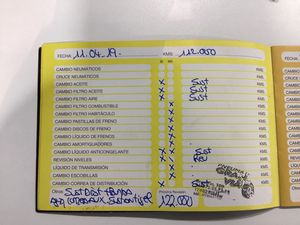 FECHA 11.04.19.- KMS: 112.000
SI NO
CAMBIO NEUMÁTICOS KMS.
CRUCE NEUMÁTICOS KMS.
CAMBIO ACEITE X Sust KMS.
CAMBIO FILTRO ACEITE X Sust KMS.
CAMBIO FILTRO AIRE X Sust KMS.
CAMBIO FILTRO COMBUSTIBLE X KMS.
CAMBIO FILTRO HABITÁCULO X KMS.
CAMBIO PASTILLAS DE FRENO X KMS.
CAMBIO DISCOS DE FRENO X KMS.
CAMBIO LÍQUIDO DE FRENOS X
CAMBIO AMORTIGUADORES X
CAMBIO LÍQUIDO ANTICONGELANTE X Sust
REVISIÓN NIVELES X Rev
LÍQUIDO DE TRANSMISIÓN X
CAMBIO ESCOBILLAS X
CAMBIO CORREA DE DISTRIBUCIÓN X Sust
Otros: Sust Dist +
Próxima Revisión:
122.000